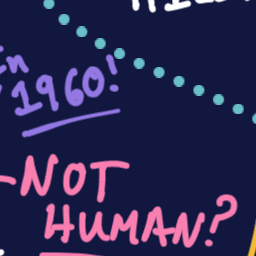 in
1960!
NOT
HUMAN?